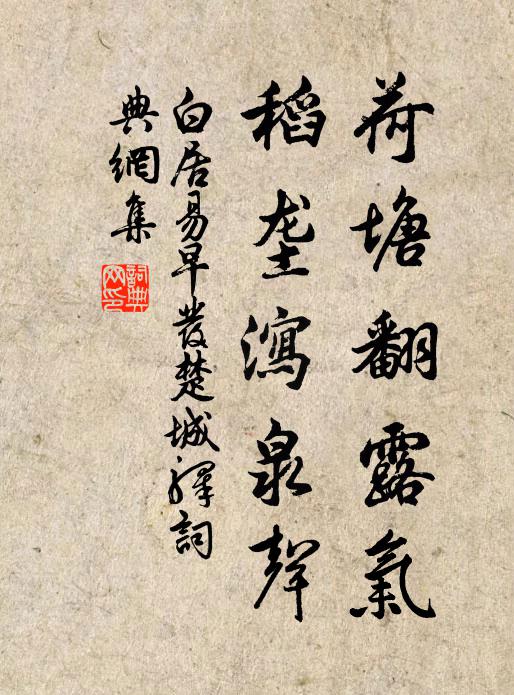 荷塘翻露氣
稻垄瀉泉聲
白居易早發楚城驛詞
典網集
詞典網印